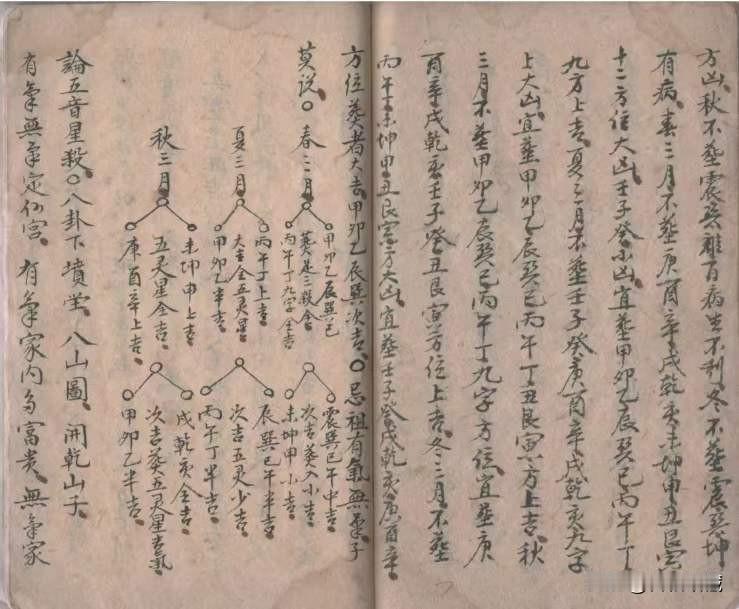 方凶秋不塟震巽離百病生不利冬不塟震巽坤
有病春三月不塟庚酉辛戌乾亥未坤申丑艮寅
十二方位大凶壬子癸小凶宜塟甲卯乙辰巽巳丙午丁
九方上吉夏三月不塟壬子癸庚酉辛戌乾亥九字
上大凶宜塟甲卯乙辰巽巳丙午丁丑艮寅方上吉秋
三月不塟甲卯乙辰巽巳丙午丁九字方位宜塟庚
酉辛戌乾亥壬子癸丑艮寅方位上吉冬三月不塟
丙午丁未坤申丑艮寅方大凶宜塟壬子癸戌乾亥庚酉辛
方位葬者大吉甲卯乙辰巽次吉〇忌祖有氣無氣子
莫说〇
春三月
甲卯乙辰巽巳
葵是三殺全
丙午丁九字全吉
震巽巳午中吉
次吉葵入小吉
未坤申小吉
夏三月
丙午丁上吉
大吉全五灵星
甲卯乙半吉
辰巽巳午半吉
次吉五灵少吉
丙午丁半吉
秋三月
未坤申上吉
五灵星全吉
庚酉辛上吉
戌乾亥全吉
次吉葵五灵星吉氣
甲卯乙半吉
論五音星殺〇八卦下墳塋八山圖開乾山子
有氣無氣定仙宫有氣家内多富贵無氣家